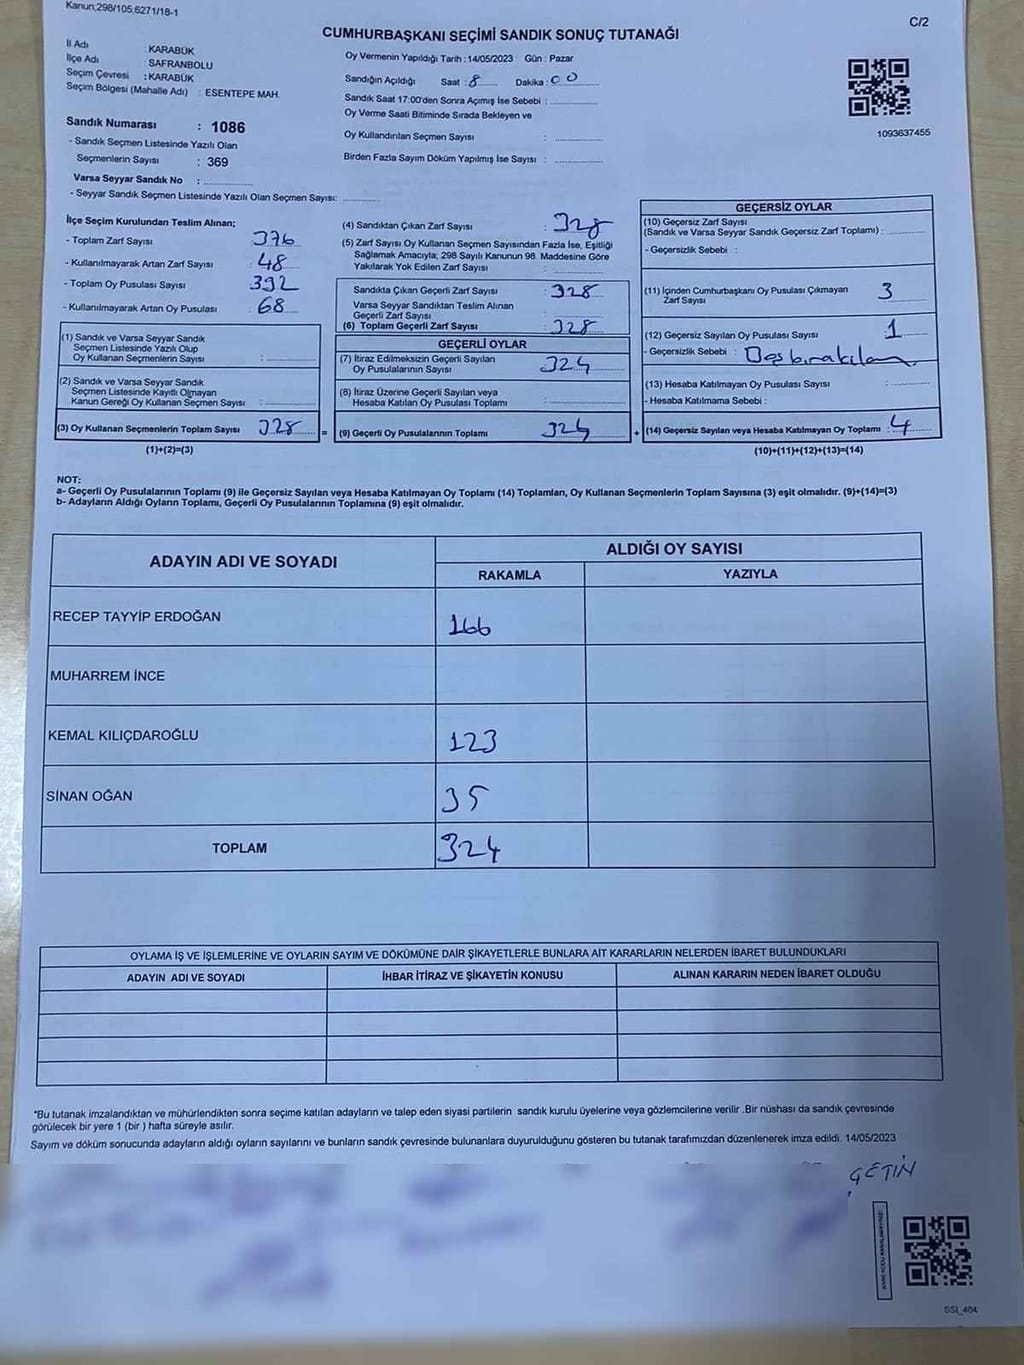 Kanun;298/105,6271/18-1
C/2
CUMHURBAŞKANI SEÇİMİ SANDIK SONUÇ TUTANAĞI
İl Adı : KARABÜK
İlçe Adı : SAFRANBOLU
Seçim Çevresi : KARABÜK
Seçim Bölgesi (Mahalle Adı) : ESENTEPE MAH.
Oy Vermenin Yapıldığı Tarih : 14/05/2023 Gün : Pazar
Sandığın Açıldığı Saat : 8 Dakika : 00
Sandık Saat 17:00'den Sonra Açımış İse Sebebi :
Oy Verme Saati Bitiminde Sırada Bekleyen ve
Oy Kullandırılan Seçmen Sayısı :
Birden Fazla Sayım Döküm Yapılmış İse Sayısı :
1093637455
Sandık Numarası : 1086
- Sandık Seçmen Listesinde Yazılı Olan
Seçmenlerin Sayısı : 369
Varsa Seyyar Sandık No :
- Seyyar Sandık Seçmen Listesinde Yazılı Olan Seçmen Sayısı:
İlçe Seçim Kurulundan Teslim Alınan;
- Toplam Zarf Sayısı : 376
- Kullanılmayarak Artan Zarf Sayısı : 48
- Toplam Oy Pusulası Sayısı : 392
- Kullanılmayarak Artan Oy Pusulası : 68
(1) Sandık ve Varsa Seyyar Sandık
Seçmen Listesinde Yazılı Olup
Oy Kullanan Seçmenlerin Sayısı :
(2) Sandık ve Varsa Seyyar Sandık
Seçmen Listesinde Kayıtlı Olmayan
Kanun Gereği Oy Kullanan Seçmen Sayısı :
(3) Oy Kullanan Seçmenlerin Toplam Sayısı : 328 =
(1)+(2)=(3)
(4) Sandıktan Çıkan Zarf Sayısı : 328
(5) Zarf Sayısı Oy Kullanan Seçmen Sayısından Fazla İse, Eşitliği
Sağlamak Amacıyla; 298 Sayılı Kanunun 98. Maddesine Göre
Yakılarak Yok Edilen Zarf Sayısı :
Sandıkta Çıkan Geçerli Zarf Sayısı : 328
Varsa Seyyar Sandıktan Teslim Alınan
Geçerli Zarf Sayısı :
(6) Toplam Geçerli Zarf Sayısı : 328
GEÇERLİ OYLAR
(7) İtiraz Edilmeksizin Geçerli Sayılan
Oy Pusulalarının Sayısı : 324
(8) İtiraz Üzerine Geçerli Sayılan veya
Hesaba Katılan Oy Pusulası Toplamı :
(9) Geçerli Oy Pusulalarının Toplamı : 324 +
GEÇERSİZ OYLAR
(10) Geçersiz Zarf Sayısı
(Sandık ve Varsa Seyyar Sandık Geçersiz Zarf Toplamı) :
- Geçersizlik Sebebi :
(11) İçinden Cumhurbaşkanı Oy Pusulası Çıkmayan
Zarf Sayısı : 3
(12) Geçersiz Sayılan Oy Pusulası Sayısı : 1
- Geçersizlik Sebebi : Boş bırakılan
(13) Hesaba Katılmayan Oy Pusulası Sayısı :
- Hesaba Katılmama Sebebi :
(14) Geçersiz Sayılan veya Hesaba Katılmayan Oy Toplamı : 4
(10)+(11)+(12)+(13)=(14)
NOT:
a- Geçerli Oy Pusulalarının Toplamı (9) ile Geçersiz Sayılan veya Hesaba Katılmayan Oy Toplamı (14) Toplamları, Oy Kullanan Seçmenlerin Toplam Sayısına (3) eşit olmalıdır. (9)+(14)=(3)
b- Adayların Aldığı Oyların Toplamı, Geçerli Oy Pusulalarının Toplamına (9) eşit olmalıdır.
ADAYIN ADI VE SOYADI
ALDIĞI OY SAYISI
RAKAMLA YAZIYLA
RECEP TAYYİP ERDOĞAN 166
MUHARREM İNCE
KEMAL KILIÇDAROĞLU 123
SİNAN OĞAN 35
TOPLAM 324
OYLAMA İŞ VE İŞLEMLERİNE VE OYLARIN SAYIM VE DÖKÜMÜNE DAİR ŞİKAYETLERLE BUNLARA AİT KARARLARIN NELERDEN İBARET BULUNDUKLARI
ADAYIN ADI VE SOYADI İHBAR İTİRAZ VE ŞİKAYETİN KONUSU ALINAN KARARIN NEDEN İBARET OLDUĞU
*Bu tutanak imzalandıktan ve mühürlendikten sonra seçime katılan adayların ve talep eden siyasi partilerin sandık kurulu üyelerine veya gözlemcilerine verilir .Bir nüshası da sandık çevresinde
görülecek bir yere 1 (bir ) hafta süreyle asılır.
Sayım ve döküm sonucunda adayların aldığı oyların sayılarını ve bunların sandık çevresinde bulunanlara duyurulduğunu gösteren bu tutanak tarafımızdan düzenlenerek imza edildi. 14/05/2023
ÇETİN
KARE KODU KARALAMAYINIZ!
SSL_404